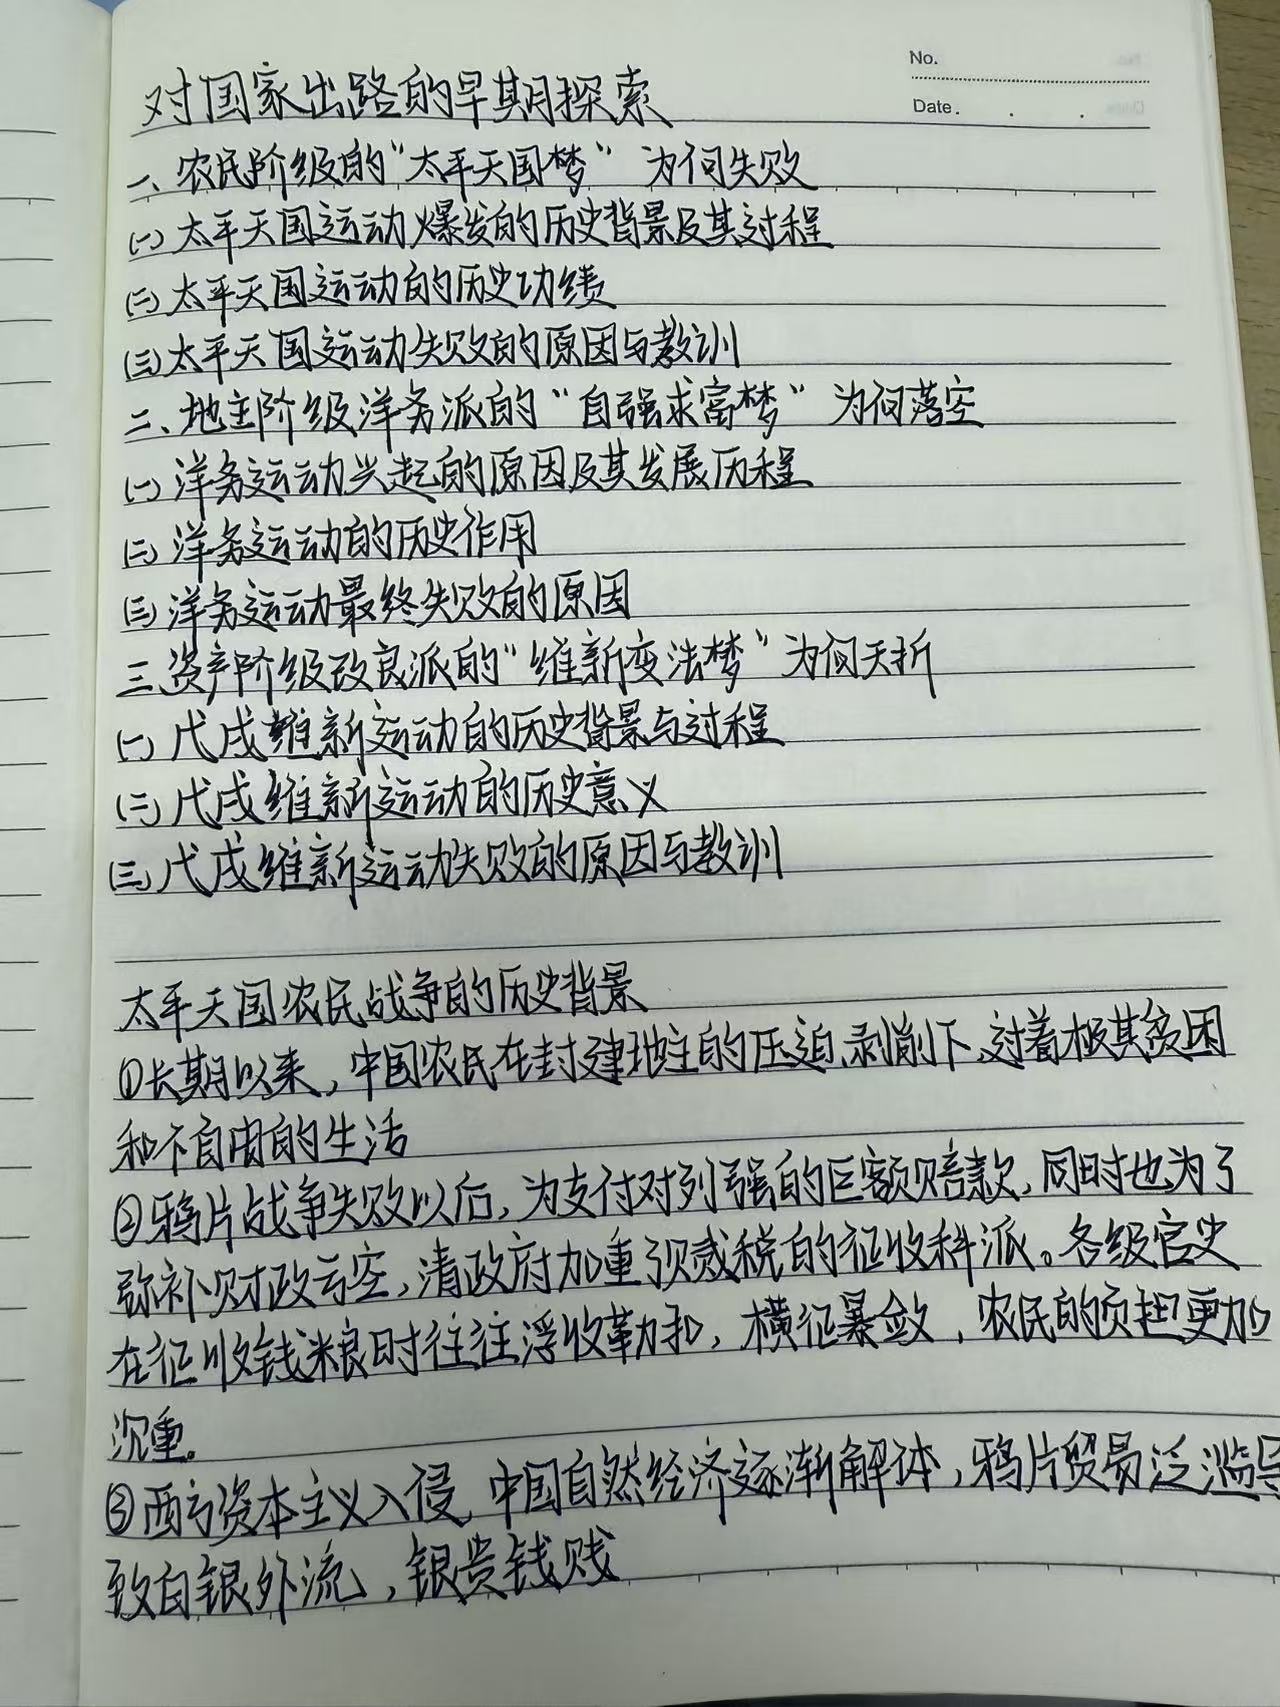 No.
Date. . .
对国家出路的早期探索
一、农民阶级的“太平天国梦” 为何失败
(一) 太平天国运动爆发的历史背景及其过程
(二) 太平天国运动的历史功绩
(三) 太平天国运动失败的原因与教训
二、地主阶级洋务派的“自强求富梦” 为何落空
(一) 洋务运动兴起的原因及其发展历程
(二) 洋务运动的历史作用
(三) 洋务运动最终失败的原因
三、资产阶级改良派的“维新变法梦”为何夭折
(一) 戊戌维新运动的历史背景与过程
(二) 戊戌维新运动的历史意义
(三) 戊戌维新运动失败的原因与教训
太平天国农民战争的历史背景
①长期以来，中国农民在封建地主的压迫、剥削下、过着极其贫困
和不自由的生活
②鸦片战争失败以后，为支付对列强的巨额赔款，同时也为了
弥补财政亏空，清政府加重了赋税的征收科派。各级官吏
在征收钱粮时往往浮收勒扣，横征暴敛，农民的负担更加
沉重。
③西方资本主义入侵，中国自然经济逐渐解体，鸦片贸易泛滥导
致白银外流，银贵钱贱